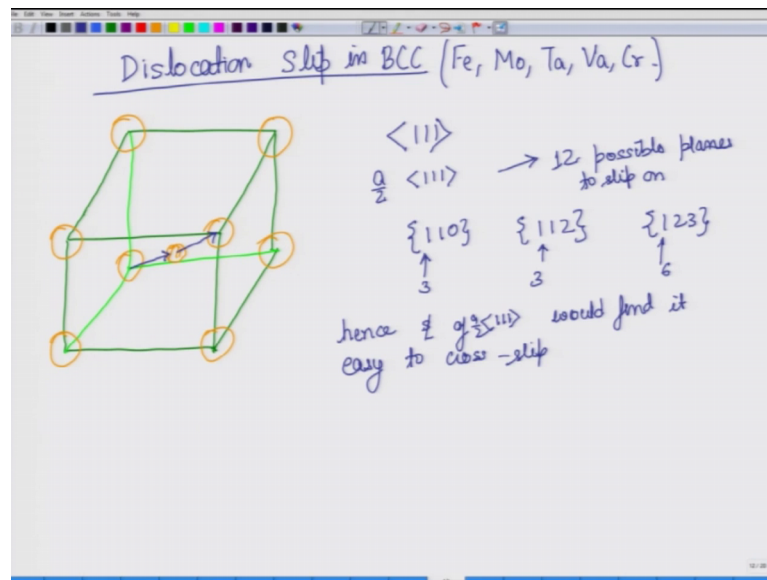 File Edit View Insert Actions Tools Help
Dislocation Slip in BCC (Fe, Mo, Ta, Va, Cr.)
<111>
a/2 <111> → 12 possible planes
to slip on
{110} {112} {123}
↑ ↑ ↑
3 3 6
hence of a/2<111> would find it
easy to cross-slip